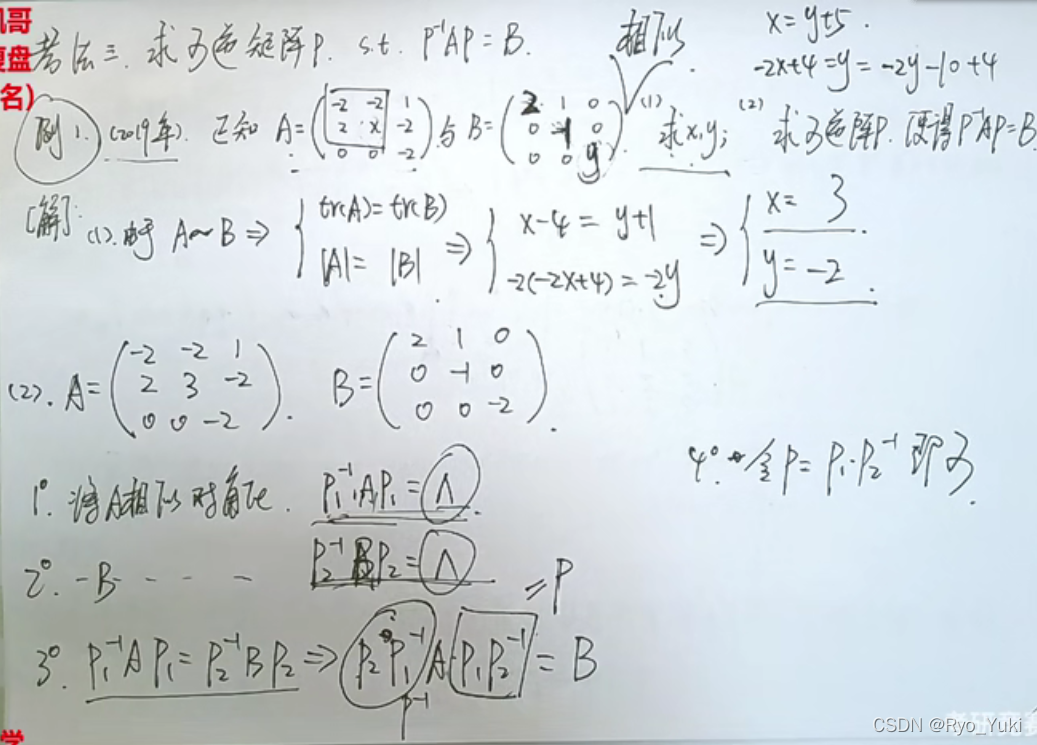 考法三. 求可逆矩阵P. s.t. P⁻¹AP = B. 相似
x = y+5.
-2x+4 = y = -2y-10+4
例1. (2019年). 已知 A = (-2 -2 1; 2 x -2; 0 0 -2) 与 B = (2 1 0; 0 -1 0; 0 0 y) (1) 求x,y; (2) 求可逆阵P. 使得P⁻¹AP=B
[解]: (1). 由于 A~B ⇒ { tr(A) = tr(B) |A| = |B| . ⇒ { x-4 = y+1 -2(-2x+4) = -2y ⇒ { x = 3 y = -2 .
(2). A = (-2 -2 1; 2 3 -2; 0 0 -2). B = (2 1 0; 0 -1 0; 0 0 -2).
1°. 将A相似对角化. P₁⁻¹AP₁ = Λ.
2°. -B- - - - P₂⁻¹BP₂ = Λ
= P
3°. P₁⁻¹AP₁ = P₂⁻¹BP₂ ⇒ P₂P₁⁻¹A·P₁P₂⁻¹ = B
P⁻¹
4°. 令P = P₁·P₂⁻¹ 即可.
学
CSDN @Ryo_Yuki